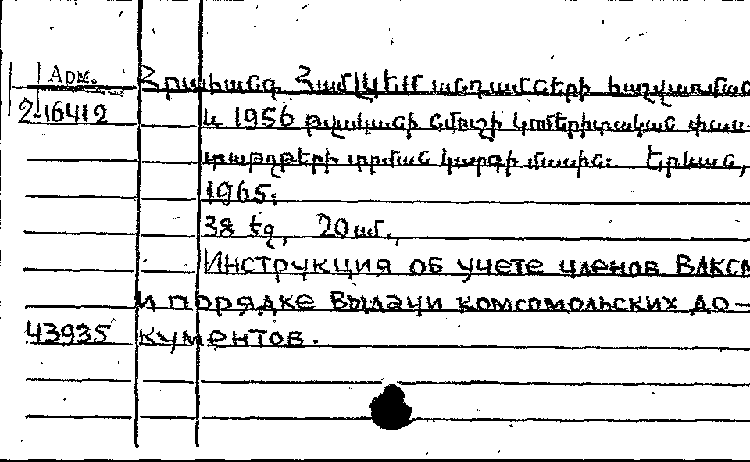 Арм.
Հրահանգ ՀամԼԿԵՄ անդամների հաշվառման
2-16412
և 1956 թվականի նմուշի կոմերիտական փաս-
տաթղթերի տրման կարգի մասին: Երևան,
1965:
38 էջ, 20 սմ.,
Инструкция об учете членов ВЛКСМ
и порядке выдачи комсомольских до-
43935 кументов.